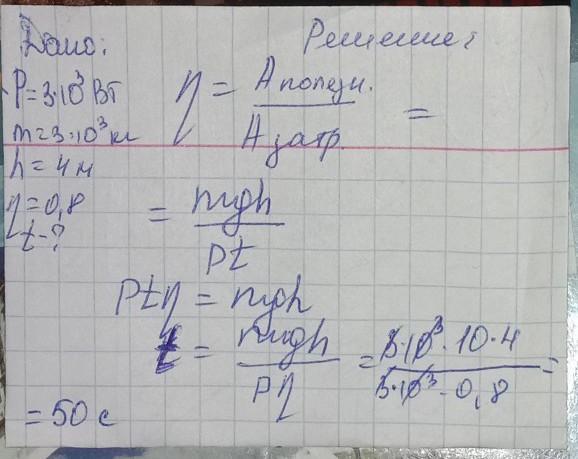 Дано:
P=3·10³ Вт
m=3·10³ кг
h=4м
η=0,8
t-?
Решение:
η = Aполезн. / Aзатр. =
= mgh / Pt
Ptη = mgh
t = mgh / Pη = 3·10³·10·4 / 3·10³·0,8 =
= 50 с